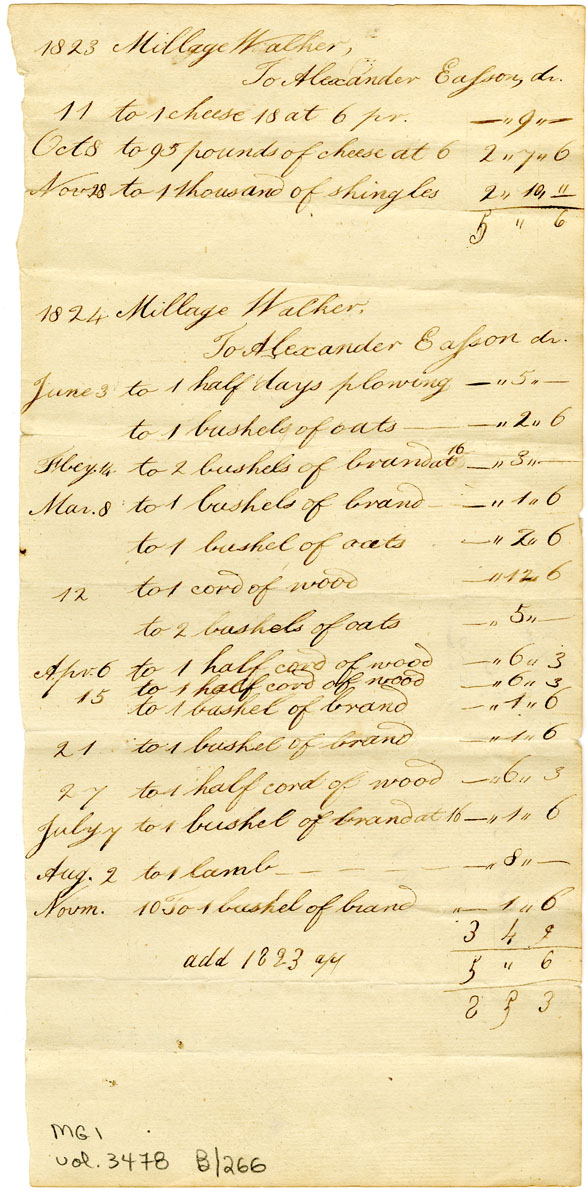 1823 Millage Walker,
To Alexander Easson, dr.
11 to 1 cheese 18 at 6 pr. — " 9 " —
Oct 8 to 95 pounds of cheese at 6 2 " 7 " 6
Nov 28 to 1 thousand of shingles 2 " 10 "
5 " 6
1824 Millage Walker,
To Alexander Easson dr.
June 3 to 1 half days plowing — " 5 " —
to 1 bushels of oats — " 2 " 6
Fbey. 14 to 2 bushels of brand at 16 — " 3 " —
Mar. 8 to 1 bushels of brand — " 1 " 6
to 1 bushel of oats — " 2 " 6
12 to 1 cord of wood — " 12 " 6
to 2 bushels of oats — " 5 " —
Apr. 6 to 1 half cord of wood — " 6 " 3
to 1 half cord of wood — " 6 " 3
15 to 1 bushel of brand — " 1 " 6
21 to 1 bushel of brand — " 1 " 6
27 to 1 half cord of wood — " 6 " 3
July 7 to 1 bushel of brand at 16 — " 1 " 6
Aug. 2 to 1 lamb — — — — " 8 " —
Novm. 10 To 1 bushel of brand " — 1 " 6
3 4 9
add 1823 a/c 5 " 6
8 5 3
MG1
vol. 3478 B/266